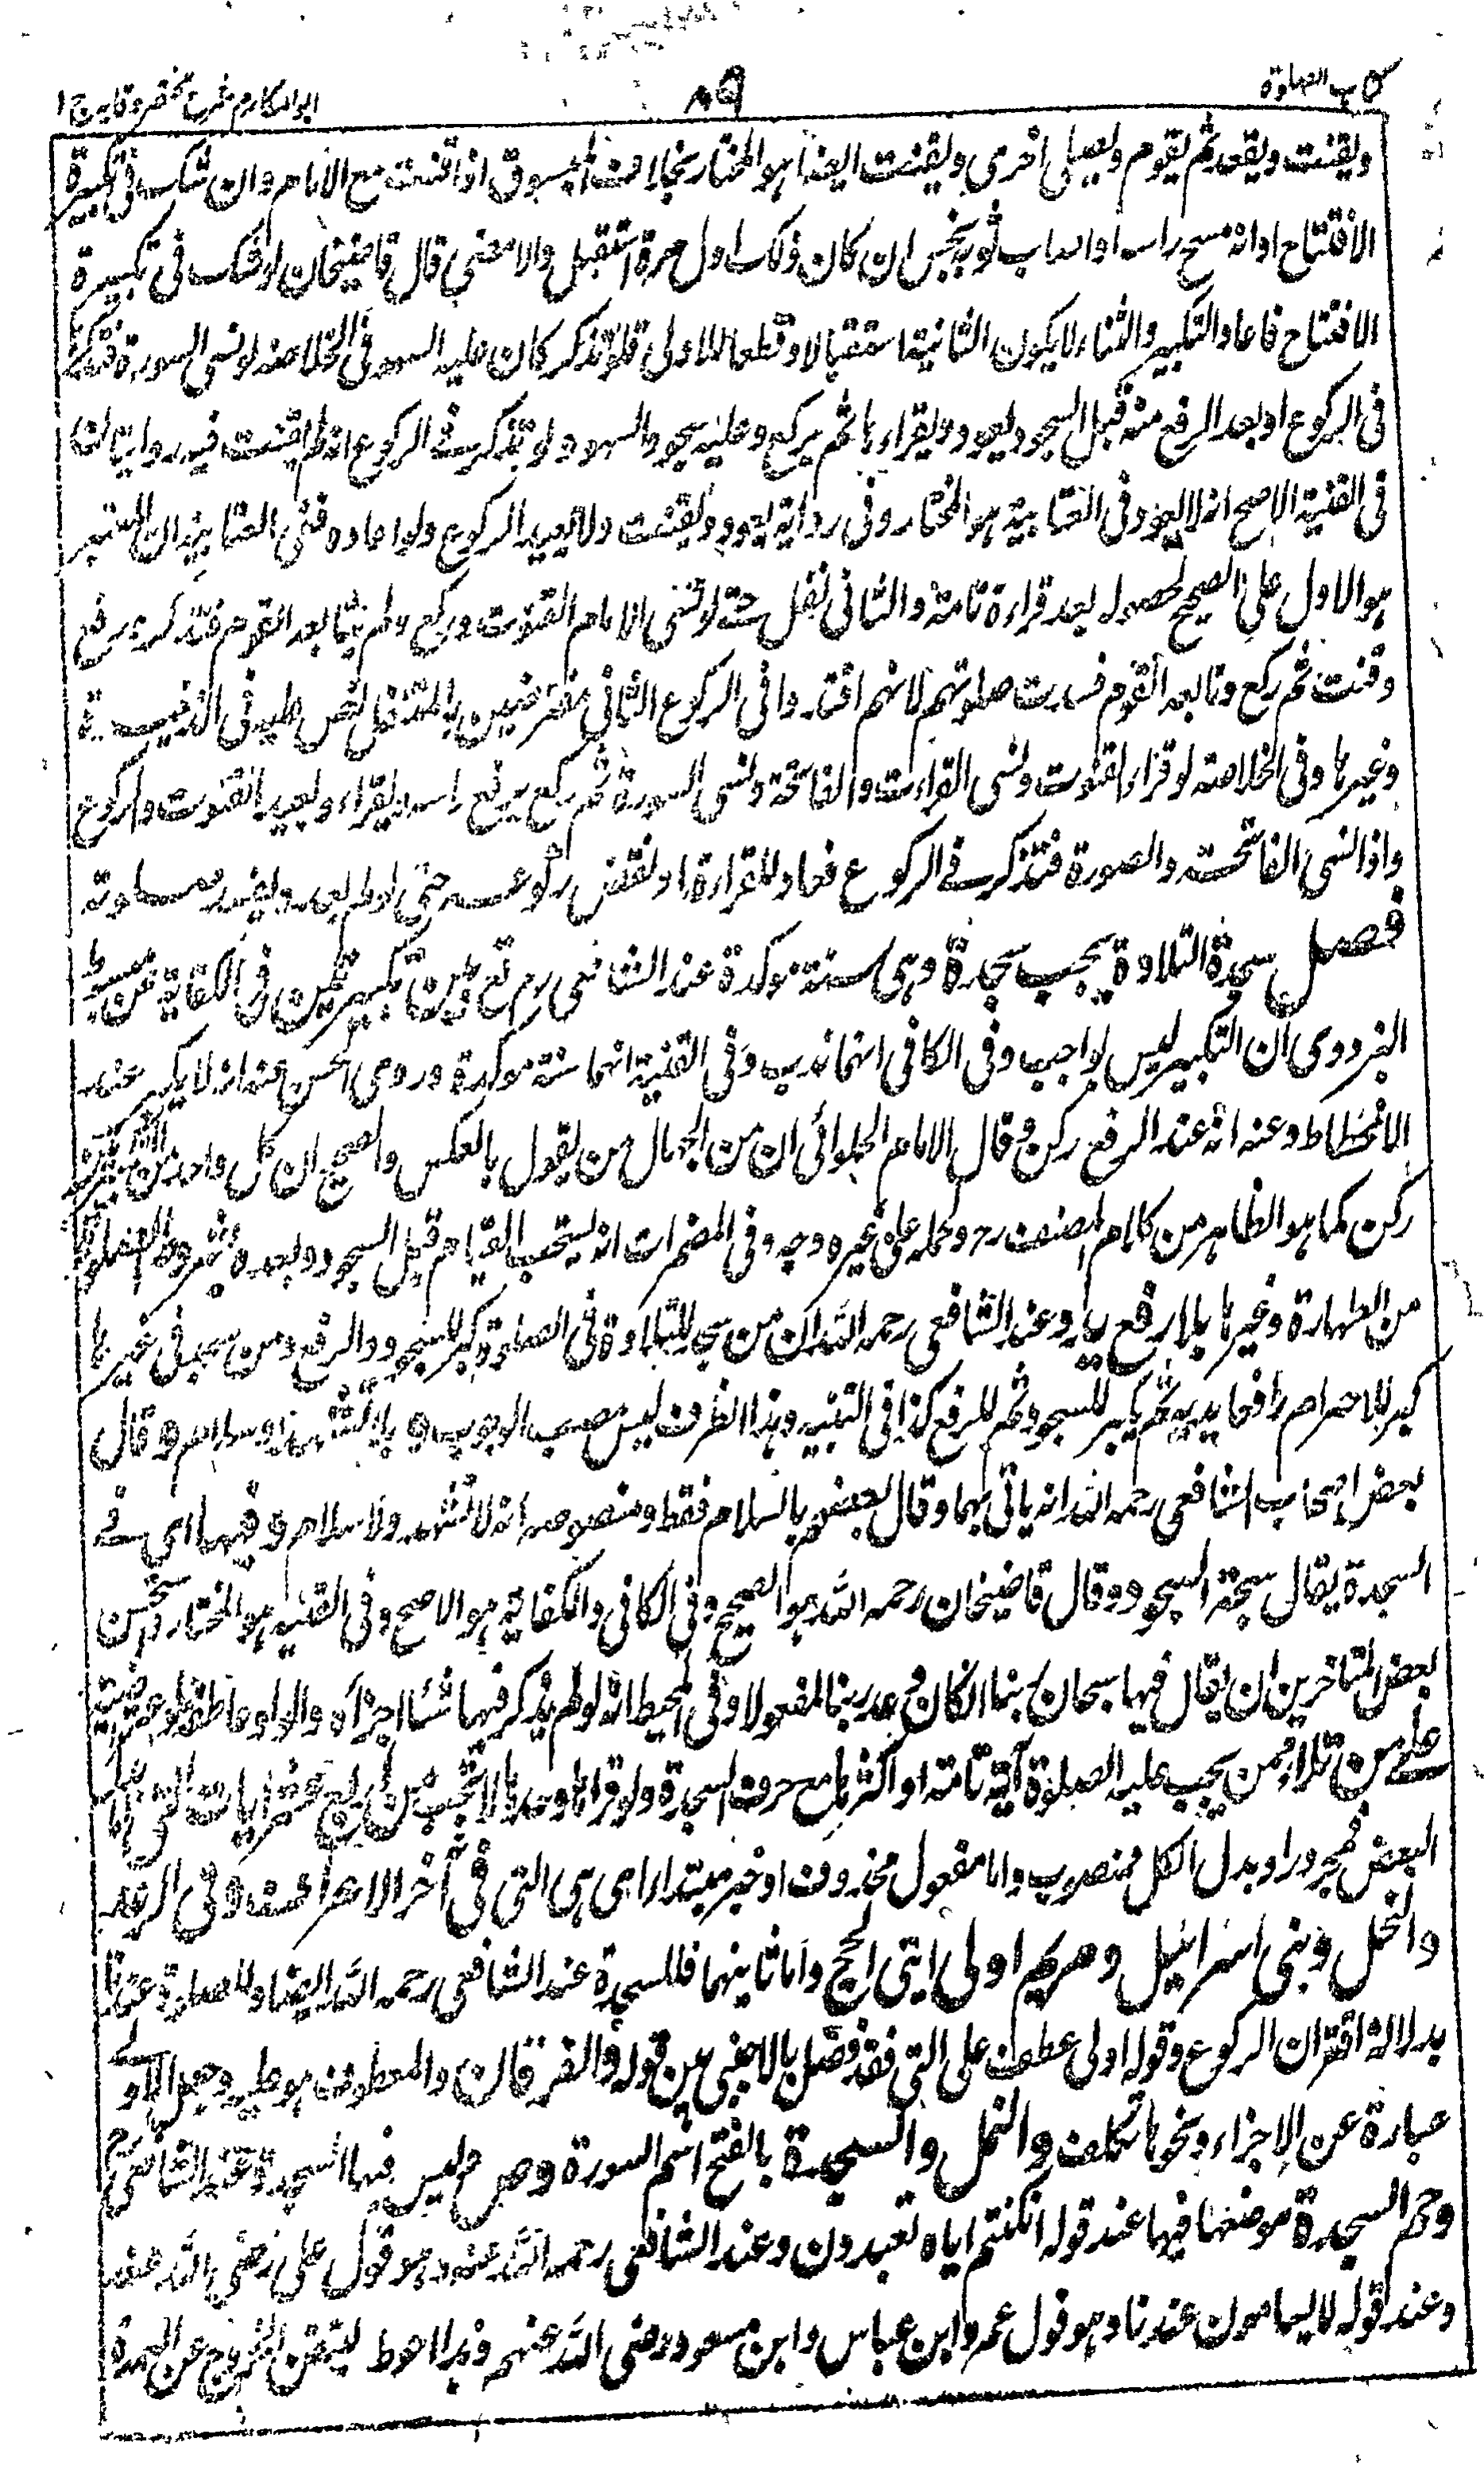 كتاب الصلوة
٨٩
ابو المكارم شرح مختصر وقايه ج ١
ويقنت ويقعد ثم يقوم ويصلى اخرى ويقنت ايضا هو المختار بخلاف المسبوق اذا قنت مع الامام وان شك فى تكبيرة
الافتتاح او انه مسح راسه او اصاب ثوبه نجس ان كان ذلك اول مرة استقبل والا مضى قال قاضيخان لو شك فى تكبيرة
الافتتاح فاعاد التكبير والثناء لا يكون الثانية استقبالا وقطعا للاولى فلو تذكر كان عليه السهو فى الخلاصة لو نسى السورة فتذكر
فى الركوع او بعد الرفع منه قبل السجود يعود ويقراءها ثم يركع وعليه سجود السهو ولو تذكر فے الركوع انه لم يقنت فيه روايتان
فى القنية الاصح انه لا يعود وفى العتابية هو المختار وفى رواية يعود ويقنت ولا يعيد الركوع ولو اعاده ففى العتابية ان المعتبر
هو الاول على الصحيح لحصوله بعد قراءة تامة والثانى نفل حتى لو نسى الامام القنوت وركع ولم يتابعه القوم فتذكر ورفع
وقنت ثم ركع وتابعه القوم فسدت صلوتهم لانهم اقتدوا فى الركوع الثانى مفترضين بالمتنفل نص عليه فى الذخيرة
وغيرها وفى الخلاصة لو قراء القنوت ونسى القراءت والفاتحة ونسى السورة ثم ركع يرفع راسه ويقراء ويعيد القنوت والركوع
واذا نسى الفاتحة والصورة فتذكر فے الركوع فعاد للقراءة انتقض ركوعه حتى لو لم يعد يفسد صلوته
فصل سجدة التلاوة يجب سجدة وهى سنة موكدة عند الشافعى رح تع بين تكبيرتين وفى الكفاية عن مبسوط
البزدوى ان التكبير ليس بواجب وفى الكافى انهما ندب وفى القنية انهما سنة موكدة وروى الحسن عنه انه لا يكبر عند
الانحطاط وعنه انه عند الرفع ركن وقال الامام الحلوائى ان من الجهال من يقول بالعكس والصحيح ان كل واحد من
ركن كما هو الظاهر من كلام المصنف رح وحمله على غيره وجه وفى المضمرات انه يستحب القيام قبل السجود وبعده بشروط الصلوة
من الطهارة وغيرها بلا رفع يد وعند الشافعى رحمه الله ان من سجد للتلاوة فى الصلوة كبر للسجود والرفع ومن سجد فى غيرها
كبر للاحرام رافعا يديه ثم يكبر للسجود ثم للرفع كذا فى التنبيه وهذا الظرف ليس مصب الوجوب و بلا تشهد وسلام و قال
بعض اصحاب الشافعى رحمه الله انه ياتى بهما وقال بعضهم بالسلام فقط ومنصوصه انه لا تشهد ولا سلام و فيها اى فے
السجدة يقال سبحة السجود وقال قاضيخان رحمه الله هو الصحيح وفى الكافى والكفاية هو الاصح وفى القنية هو المختار واستحسن
بعض المتاخرين ان يقال فيها سبحان ربنا ان كان وعد ربنا لمفعولا وفى المحيط انه لو لم يذكر فيها شئا اجزأه والواو عاطفة
على من تلا ممن يجب عليه الصلوة آية تامة او اكثرها مع حرف السجدة ولو قراها وحدها لا تجب من اربع عشر اية التى
البعض فمجرور او بدل الكل فمنصوب واما مفعول محذوف او خبر مبتدا اى هى التى فى آخر الاعراف و فى الرعد
والنحل وبنى اسرائيل ومريم اولى ايتى الحج واما ثانيتهما فللسجدة عند الشافعى رحمه الله ايضا وللصلوة عندنا
بدلالة اقتران الركوع وقوله اولى عطف على التى فقد فصل بالاجنبى بين قوله والفرقان والمعطوف هو عليه وجعل الاولى
عبارة عن الاجزاء ونحوها تكلف والنمل والسجدة بالفتح اسم السورة وص وليس فيها سجدة عند الشافعى رح
وحم السجدة موضعها فيها عند قوله ان كنتم اياه تعبدون وعند الشافعى رحمه الله عنه وهو قول على رضى الله عنه
وعند قوله لا يسامون عندنا وهو قول عمر وابن عباس وابن مسعود رضى الله عنهم وهذا احوط ليتيقن الخروج عن العهدة